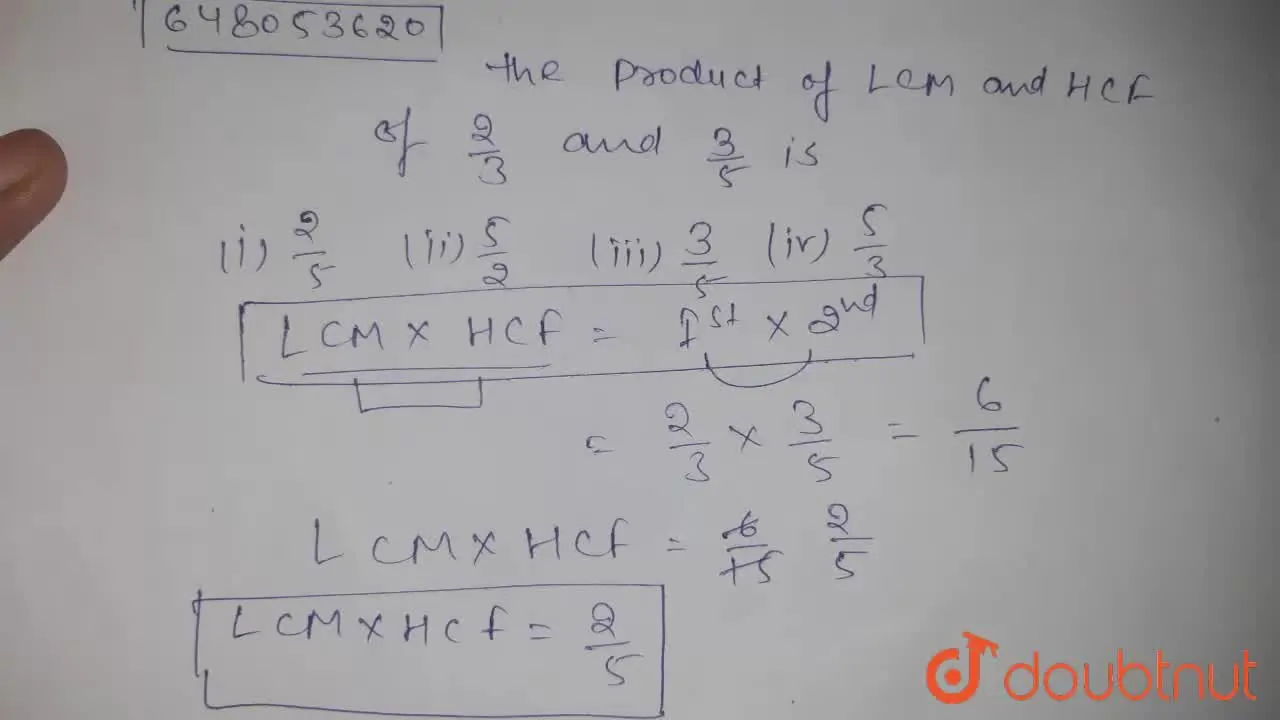 648053620
the product of LCM and HCF
of 2/3 and 3/5 is
(i) 2/5 (ii) 5/2 (iii) 3/5 (iv) 5/3
LCM × HCF = Ist × 2nd
= 2/3 × 3/5 = 6/15
LCM × HCF = 6/15 2/5
LCM × HCF = 2/5
doubtnut